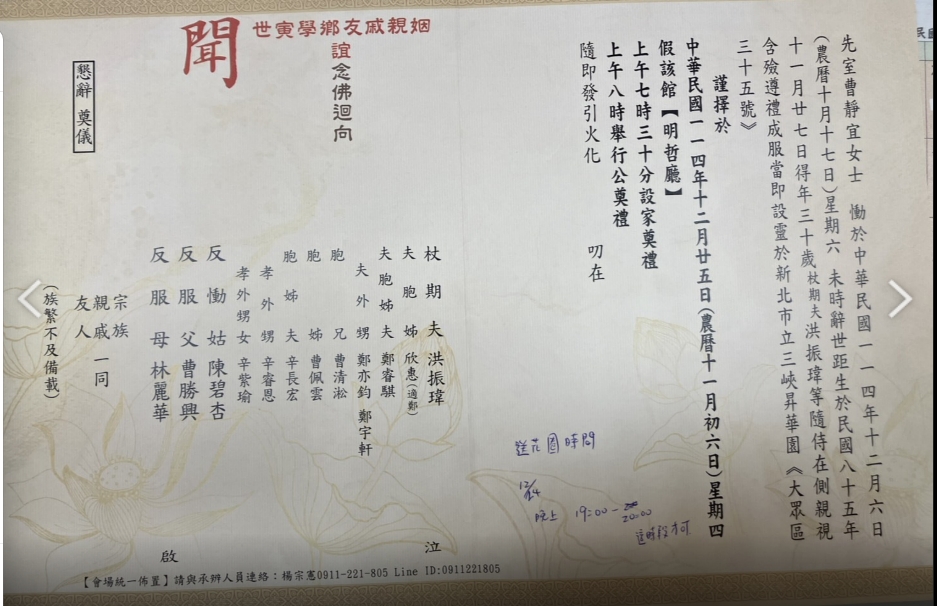 先室曹靜宜女士 慟於中華民國一一四年十二月六日
(農曆十月十七日)星期六 未時辭世距生於民國八十五年
十一月廿七日得年三十歲杖期夫洪振瑋等隨侍在側親視
含殮遵禮成服當即設靈於新北市立三峽昇華園《大眾區
三十五號》
謹擇於
中華民國一一四年十二月廿五日(農曆十一月初六日)星期四
假該館【明哲廳】
上午七時三十分設家奠禮
上午八時舉行公奠禮
隨即發引火化 叨在
姻親戚友鄉學寅世
誼 念佛迴向
聞
懇辭 奠儀
杖期夫 洪振瑋 泣
夫胞姊 欣惠(適鄭)
夫胞姊夫 鄭睿騏
夫外甥 鄭亦鈞 鄭宇軒
胞兄 曹清淞
胞姊 曹佩雲
胞姊夫 辛長宏
孝外甥 辛睿恩
孝外甥女 辛紫瑜
反慟姑 陳碧杏
反服父 曹勝興
反服母 林麗華 啟
宗族
親戚 一同
友人
(族繁不及備載)
送花圈時間
12/24
晚上 19:00-20:00
這時段才可
【會場統一佈置】請與承辦人員連絡：楊宗憲0911-221-805 Line ID:0911221805